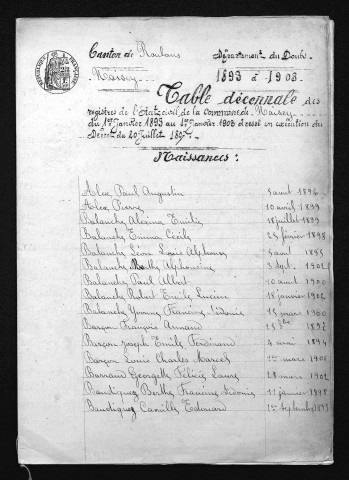 Canton de Roulans
Département du Doubs
Naisey
1893 à 1903.
Table décennale des
registres de l'Etat civil de la commune de Naisey
du 1er Janvier 1893 au 1er Janvier 1903 dressé en exécution du
Décret du 20 Juillet 1807.
Naissances :
Paul Augustin 5 aout 1896
Pierre 10 avril 1899
Balanche Alexina Emilie 18 juillet 1899
Balanche Emma Cécile 25 février 1898
Balanche Léon Louis Alphonse 5 aout 1895
Balanche Marthe Alphonsine 3 Sept. 1902
Balanche Paul Albert 10 aout 1900
Balanche Robert Emile Lucien 18 janvier 1902
Balanche Yvonne Francine Sidonie 15 mars 1900
Barçon François Armand 1897
Barçon Joseph Emile Ferdinand 4 mai 1894
Barçon Louis Charles Marcel 1er mars 1900
Barraud Georgette Félicie Laure 28 mars 1902
Baudiquez Berthe Francine Sidonie 11 janvier 1898
Baudiquez Camille Edouard 1er septembre 1893